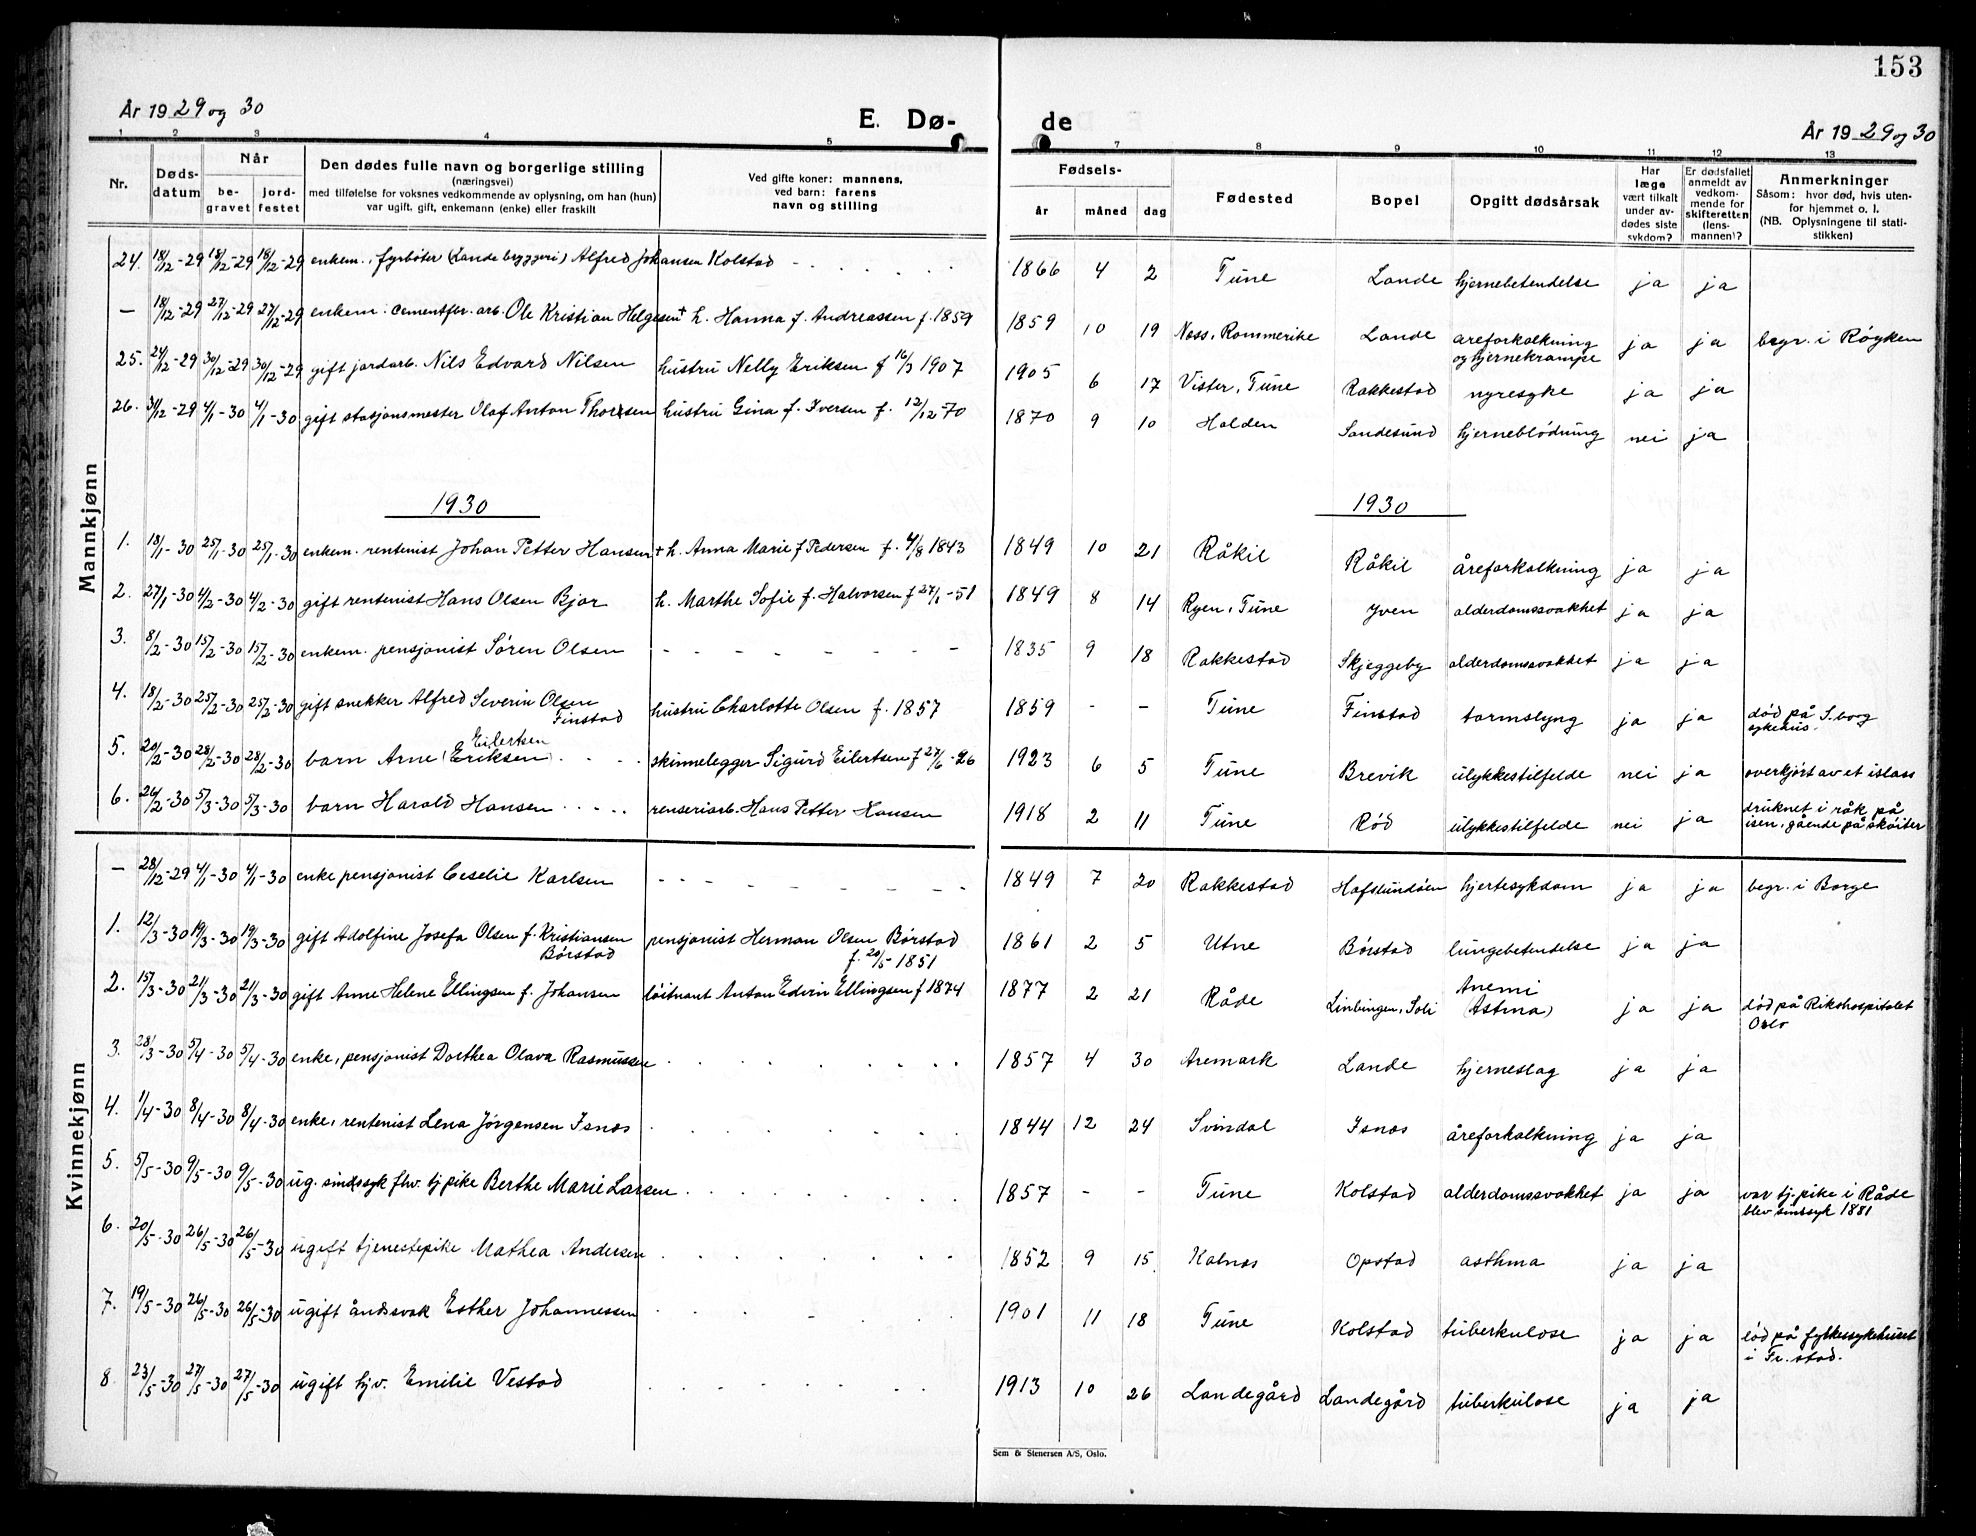 153
År 19 29 og 30
E. Dø-
de
År 19 29 og 30
1 2 3 4 5
7 8 9 10 11 12 13
Nr.
Døds-
datum
Når
be-
gravet
jord-
festet
Den dødes fulle navn og borgerlige stilling
(næringsvei)
med tilføielse for voksnes vedkommende av oplysning, om han (hun)
var ugift, gift, enkemann (enke) eller fraskilt
Ved gifte koner: mannens,
ved barn: farens
navn og stilling
Fødsels-
år måned dag
Fødested
Bopel
Opgitt dødsårsak
Har
læge
vært tilkalt
under av-
dødes siste
sykdom?
Er dødsfallet
anmeldt av
vedkom-
mende for
skifteretten
(lens-
mannen)?
Anmerkninger
Såsom: hvor død, hvis uten-
for hjemmet o. l.
(NB. Oplysningene til stati-
stikken)
Mannkjønn
24. 18/12-29 18/12-29 18/12-29 enkem., fyrbøter (Lande bryggeri) Alfred Johansen Kolstad - 1866 4 2 Tune Lande hjernebetendelse ja ja
— 18/12-29 27/12-29 27/12-29 enkem. cementfbr. arb. Ole Kristian Helgesen + h. Hanna f. Andreassen f. 1859 1859 10 19 Ness, Rommerike Lande areforkalkning ja ja begr. i Røyken
og hjernekrampe
25. 24/12-29 30/12-29 30/12-29 gift jordarb. Nils Edvard Nilsen hustru Nelly Eriksen f 16/3 1907 1905 6 17 Vister, Tune Rakkestad nyresyke ja ja
26. 31/12-29 4/1-30 4/1-30 gift stasjonsmester Olaf Anton Thoresen hustru Gina f. Iversen f. 12/12 70 1870 9 10 Halden Sandesund hjerneblødning nei ja
1930 1930
1. 18/1-30 25/1-30 25/1-30 enkem. rentenist Johan Petter Hansen + h. Anna Marie f Pedersen f. 4/8 1843 1849 10 21 Råkil Råkil åreforkalkning ja ja
2. 27/1-30 4/2-30 4/2-30 gift rentenist Hans Olsen Bjor h. Marthe Sofie f. Halvorsen f 27/1-51 1849 8 14 Ryen, Tune Yven alderdomssvakhet ja ja
3. 8/2-30 15/2-30 15/2-30 enkem. pensjonist Søren Olsen - - - - - - - 1835 9 18 Rakkestad Skjeggeby alderdomssvakhet ja ja
4. 18/2-30 25/2-30 25/2-30 gift snekker Alfred Severin Olsen hustru Charlotte Olsen f. 1857 1859 - - Tune Finstad tarmslyng ja ja død på S.borg
Finstad sykehus.
Eilertsen
5. 20/2-30 28/2-30 28/2-30 barn Arne (Eriksen) skinnelegger Sigurd Eilertsen f 27/6-26 1923 6 5 Tune Brevik ulykkestilfelde nei ja overkjørt av et islass
6. 26/2-30 5/3-30 5/3-30 barn Harald Hansen renseriarb. Hans Petter Hansen 1918 2 11 Tune Rød ulykkestilfelde nei ja druknet i råk på
isen, gående på skøiter
Kvinnekjønn
— 28/12-29 4/1-30 4/1-30 enke pensjonist Ceselie Karlsen - - - - - - - 1849 7 20 Rakkestad Hafslundøen hjertesykdom ja ja begr. i Borge
1. 12/3-30 19/3-30 19/3-30 gift Adolfine Josefa Olsen f. Kristiansen pensjonist Herman Olsen Børstad 1861 2 5 Utne Børstad lungebetendelse ja ja
Børstad f. 20/5 1851
2. 15/3-30 21/3-30 21/3-30 gift Anne Helene Ellingsen f. Johansen løitnant Anton Edvin Ellingsen f 1874 1877 2 21 Råde Linbingen, Soli Anemi ja ja død på Rikshospitalet
(Astma) Oslo
3. 28/3-30 5/4-30 5/4-30 enke, pensjonist Dorthea Olava Rasmussen 1857 4 30 Aremark Lande hjerneslag ja ja
4. 1/4-30 8/4-30 8/4-30 enke, rentenist Lena Jørgensen Isnes 1844 12 24 Svindal Isnes åreforkalkning ja ja
5. 5/5-30 9/5-30 9/5-30 ug. sinnssyk fhv. tj pike Berthe Marie Larsen 1857 - - Tune Kolstad alderdomssvakhet ja ja var tj. pike i Råde
blev sinssyk 1881
6. 20/5-30 26/5-30 26/5-30 ugift tjenestepike Mathea Andersen 1852 9 15 Kalnes Opstad asthma ja ja
7. 19/5-30 26/5-30 26/5-30 ugift åndssvak Esther Johannessen 1901 11 18 Tune Kolstad tuberkulose ja ja død på fylkessykehuset
i Fr. stad.
8. 23/5-30 27/5-30 27/5-30 ugift hjv. Emilie Vestad 1913 10 26 Landegård Landegård tuberkulose ja ja
Sem & Stenersen A/S, Oslo.